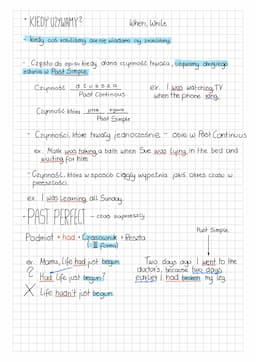 • KIEDY UŻYWAMY?
When, While
- kiedy coś robiliśmy ale nie wiadomo czy skończyliśmy
- Często do opisu kiedy dana czynność trwała, używamy drugiego
zdania w Past Simple
Czynność dłuższa
Past Continuous
ex. I was watching TV
when the phone rang.
Czynność która
Past Simple
- Czynności, które trwały jednocześnie - obie w Past Continuous
ex. Mark was taking a bath when Sue was lying in the bed and
waiting for him
- Czynność, która w sposób ciągły wypełnia jakiś okres czasu w
przeszłości
ex. I was learning all Sunday.
• PAST PERFECT - czas zaprzeszły
Podmiot + had + Czasownik + Reszta
(III forma)
Past Simple
ex. Mamu, Life had just begun
? Had Life just begun?
X Life hadn't just begun
Two days ago I went to the
doctors, because two days
earlier I had broken my leg.